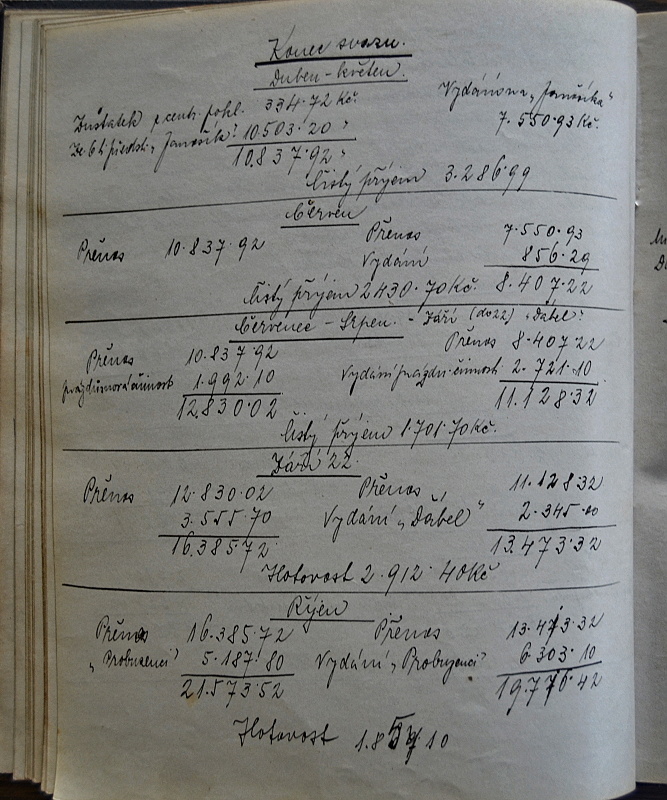 Konec svazu.
Duben - květen.
Zůstatek z centr. pokl. 334.72 Kč. Vydání na „Janošíka"
Ze 6ti předst. „Janošík" 10.503.20 " 7.550.93 Kč.
10.837.92 "
Čistý příjem 3.286.99
Červen
Přenos 10.837.92 Přenos 7.550.93
Vydání 856.29
Čistý příjem 2430.70 Kč. 8.407.22
Červenec - Srpen. - Září (do 22) „Ďábel"
Přenos 10.837.92 Přenos 8.407.22
prázdninová činnost 1.992.10 Vydání prázdn. činnosti 2.721.10
12.830.02 11.128.32
Čistý příjem 1.701.70 Kč.
Září 22.
Přenos 12.830.02 Přenos 11.128.32
3.555.70 Vydání „Ďábel" 2.345.00
16.385.72 13.473.32
Hotovost 2.912.40 Kč
Říjen
Přenos 16.385.72 Přenos 13.473.32
„Probuzenci" 5.187.80 Vydání „Probuzenci" 6.303.10
21.573.52 19.776.42
Hotovost 10